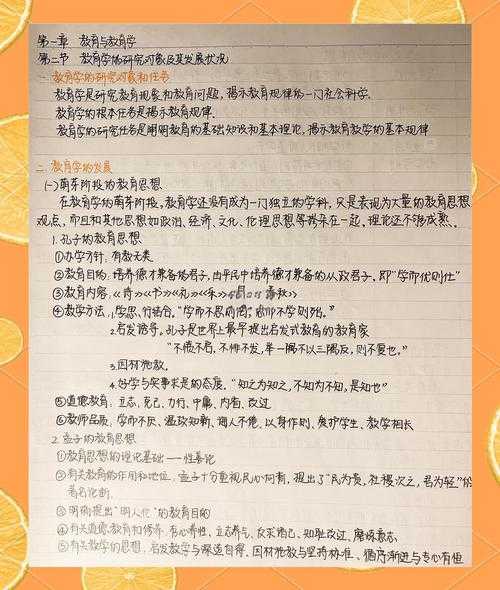 第一章 教育与教育学
第二节 教育学的研究对象及其发展状况
一、教育学的研究对象和任务
教育学是研究教育现象和教育问题，揭示教育规律的一门社会科学.
教育学的根本任务是揭示教育规律.
教育学的研究任务是阐明教育的基础知识和基本理论，揭示教育教学的基本规律
二、教育学的发展
(一)萌芽阶段的教育思想
在教育学的萌芽阶段，教育学还没有成为一门独立的学科，只是表现为大量的教育思想
观点，而且和其他思想如政治、经济、文化、伦理思想等掺杂在一起，理论还不够成熟。
1.孔子的教育思想
①办学方针：有教无类
②教育目的：培养德才兼备的君子，由平民中培养德才兼备的从政君子，即“学而优则仕”
③教育内容：《诗》《书》《礼》《乐》《易》《春秋》
④教学方法：1.学、思、行结合，“学而不思则罔，思而不学则殆。”
2.启发诱导，孔子是世界上最早提出启发式教育的教育家
“不愤不启，不悱不发，举一隅不以三隅反，则不复也。”
3.因材施教。
4.好学与实事求是的态度，“知之为知之，不知为不知，是知也”
⑤道德教育：立志、克己、力行、中庸、内省、改过
⑥教师品质：学而不厌、温故知新、诲人不倦、以身作则、爱护学生、教学相长
2.孟子的教育思想
①教育思想的理论基础——性善论
②有关教育的作用和地位，孟子十分重视民心向背，提出了“民为贵，社稷次之，君为轻”的
著名论断.
③明确提出“明人伦”的教育目的
④有关道德教育和修养：存心养性、立志养气、反求诸己、知耻改过、磨炼意志
⑤有关教学的思想：启发教学与深造自得、因材施教与坚持标准、循序渐进与专心有恒